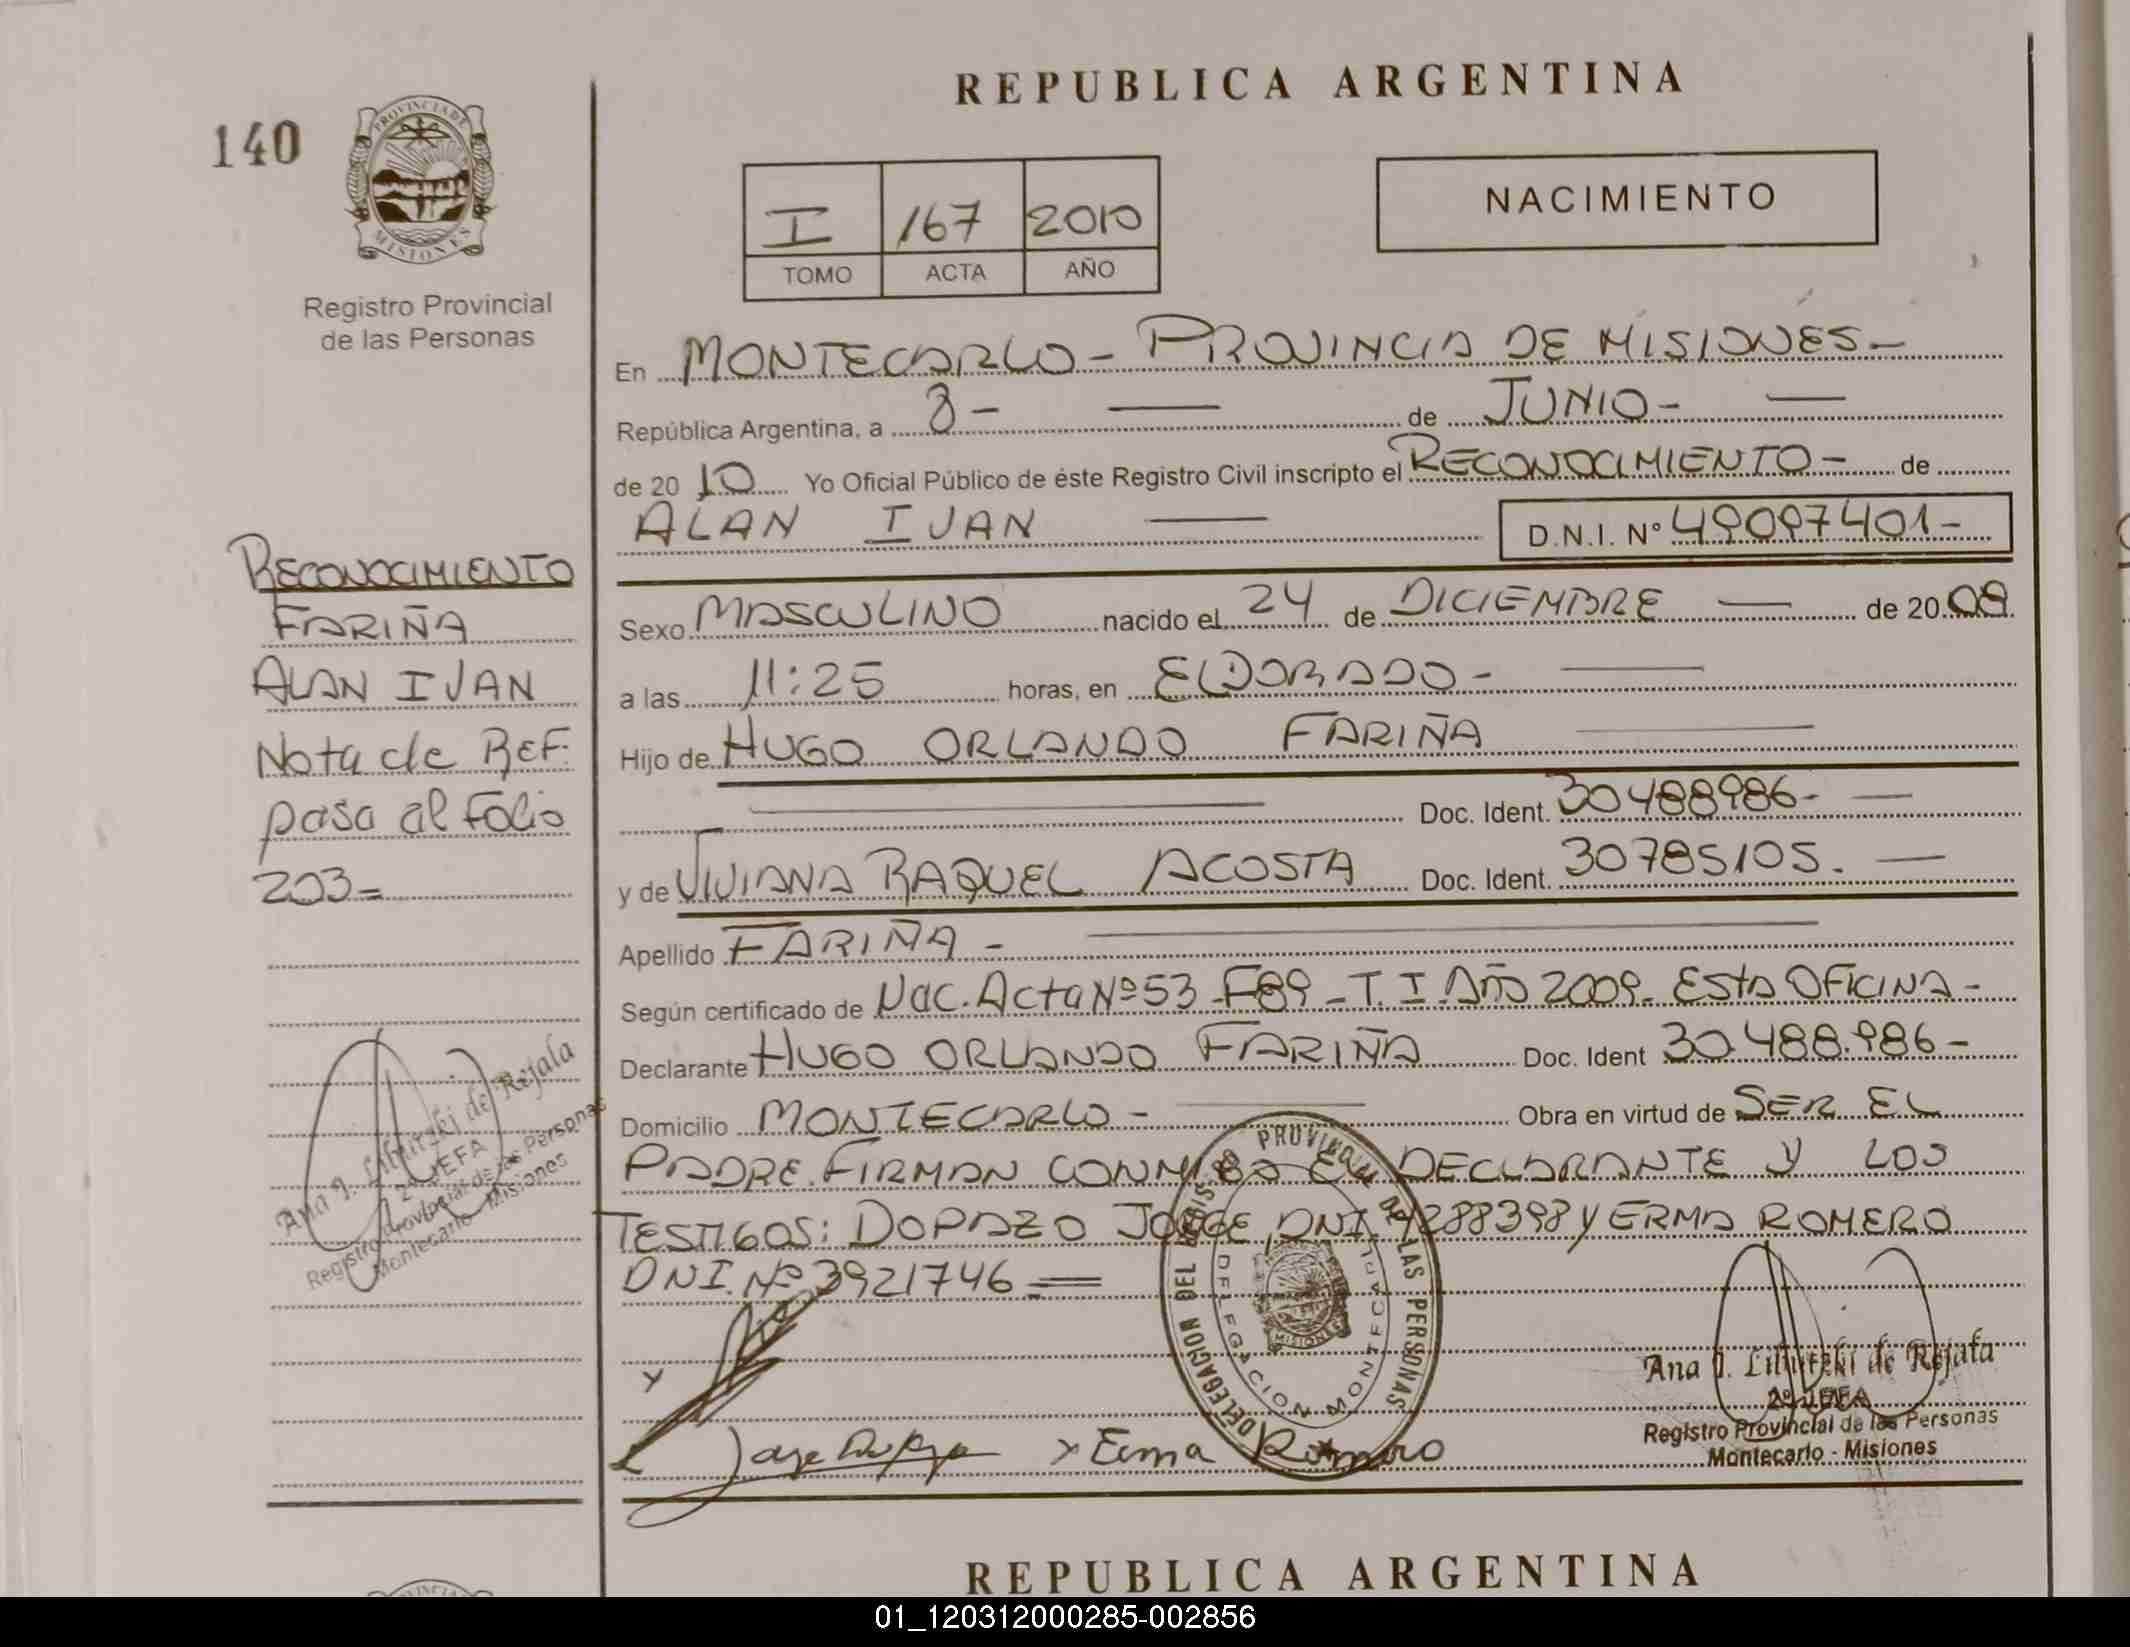 REPUBLICA ARGENTINA
140
PROVINCIA DE
MISIONES
Registro Provincial
de las Personas
I 167 2010
TOMO ACTA AÑO
NACIMIENTO
En MONTECARLO - PROVINCIA DE MISIONES -
República Argentina, a 8 - de JUNIO -
de 20 10 Yo Oficial Público de éste Registro Civil inscripto el RECONOCIMIENTO - de
ALAN IVAN D.N.I. N° 49097401 -
RECONOCIMIENTO
FARIÑA
ALAN IVAN
Nota de REF.
pasa al Folio
203 =
Sexo MASCULINO nacido el 24 de DICIEMBRE de 20 08
a las 11:25 horas, en ELDORADO -
Hijo de HUGO ORLANDO FARIÑA
Doc. Ident. 30488986 -
y de VIVIANA RAQUEL ACOSTA Doc. Ident. 30785105.
Apellido FARIÑA -
Según certificado de Nac. Acta Nº 53 - F89 - T. I. AÑO 2009. ESTA OFICINA -
Declarante HUGO ORLANDO FARIÑA Doc. Ident 30.488.986 -
Domicilio MONTECARLO - Obra en virtud de SER EL
PADRE. FIRMAN CONMIGO EL DECLARANTE Y LOS
TESTIGOS: DOPAZO JORGE, DNI 4288398 Y ERMA ROMERO
DNI. Nº 3921746 =
DELEGACION DEL REGISTRO PROVINCIAL DE LAS PERSONAS
DELEGACION MONTECARLO
MISIONES
x Erma Romero
Ana I. de Rejala
2º JEFA
Registro Provincial de las Personas
Montecarlo - Misiones
Ana I. de Rejala
2º JEFA
Registro Provincial de las Personas
Montecarlo - Misiones
REPUBLICA ARGENTINA
01_120312000285-002856